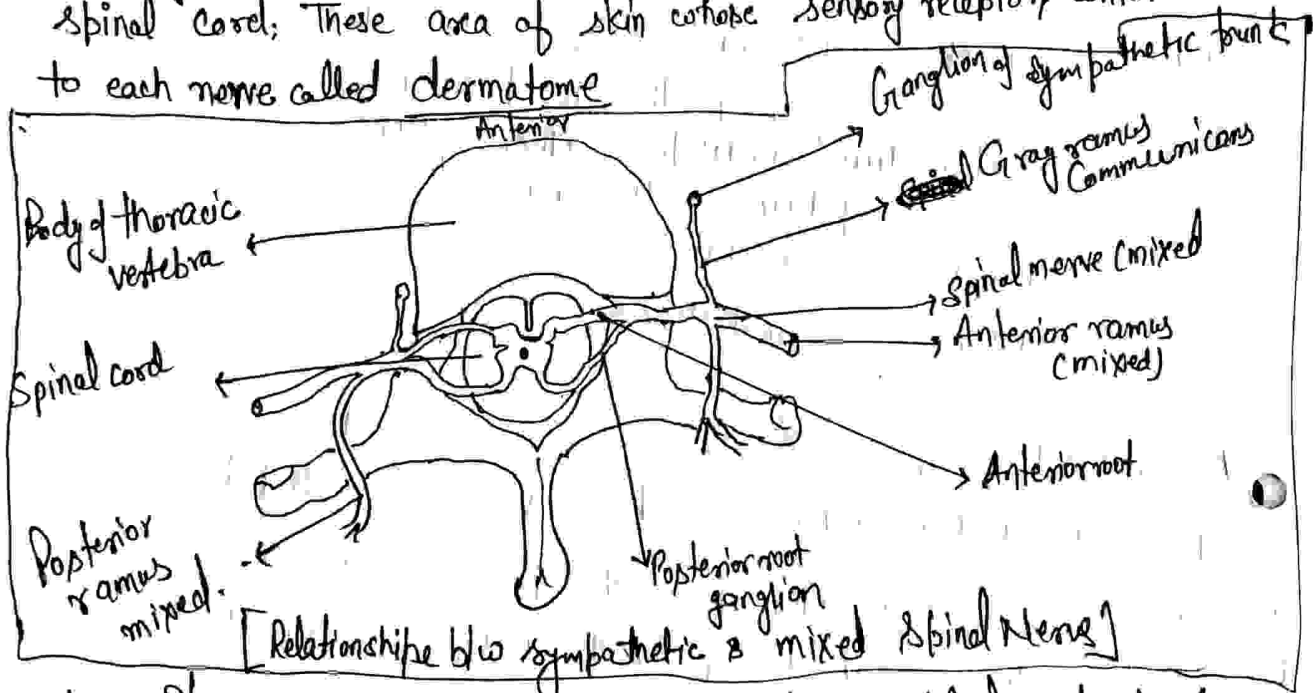 spinal cord; These area of skin whose sensory
to each nerve called dermatome
Anterior
Ganglion of sympathetic trunk
Gray ramus
Communicans
Body of thoracic
vertebra
Spinal nerve (mixed
Anterior ramus
(mixed)
Spinal cord
Anterior root
Posterior
ramus
mixed.
Posterior root
ganglion
[Relationshipe b/w sympathetic & mixed Spinal Nerve]